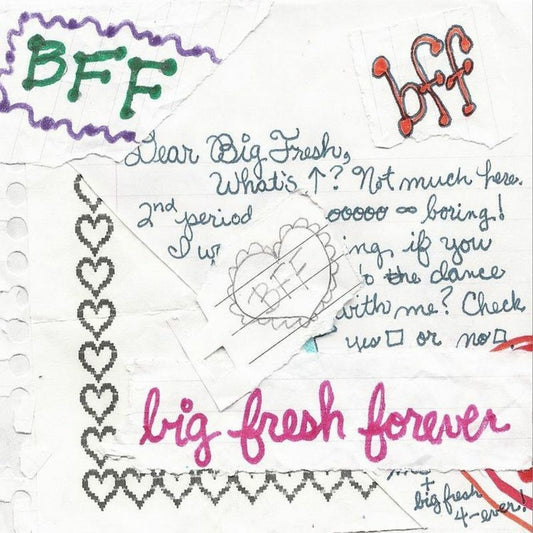 BFF
bff
Dear Big Fresh,
What's ↑? Not much here.
2nd period ooooo boring!
I w ng, if you
BFF
o the dance
with me? Check
yes □ or no □
big fresh forever
me
+
big fresh
4-ever!